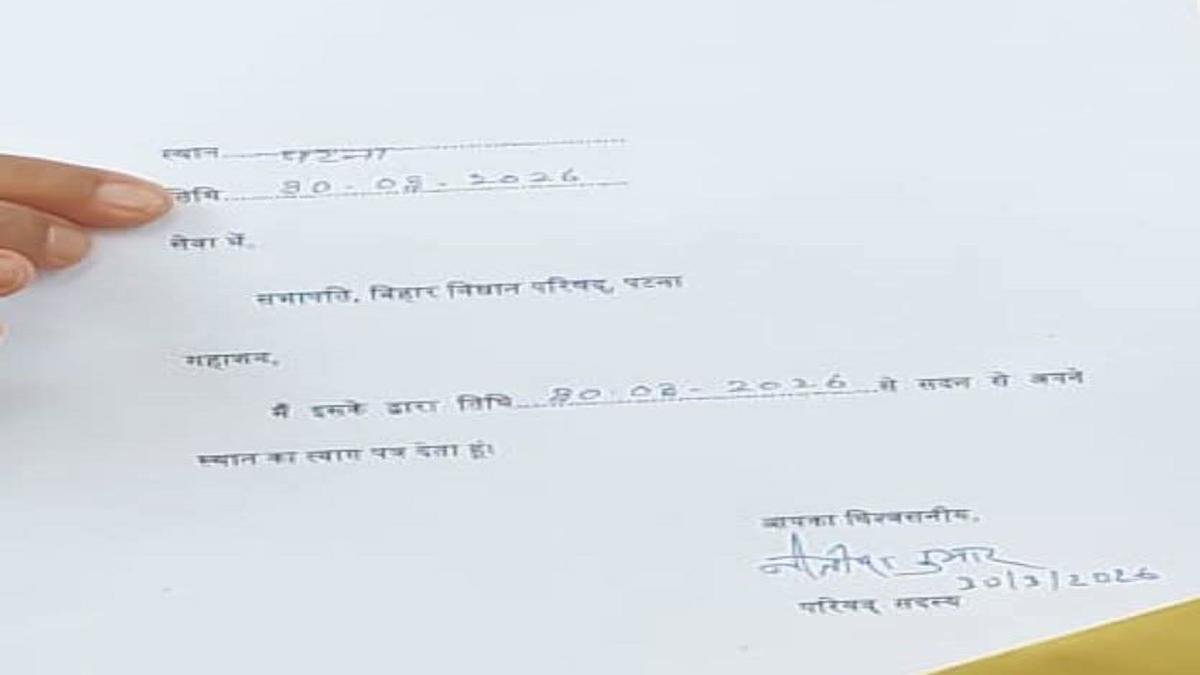 स्थान.....पटना.....
तिथि.....30-03-2026.....
सेवा में,
सभापति, बिहार विधान परिषद्, पटना
महाशय,
मैं इसके द्वारा तिथि.....30.03-2026.....से सदन से अपने
स्थान का त्याग पत्र देता हूं।
आपका विश्वसनीय,
नीतीश कुमार
30/3/2026
परिषद् सदस्य